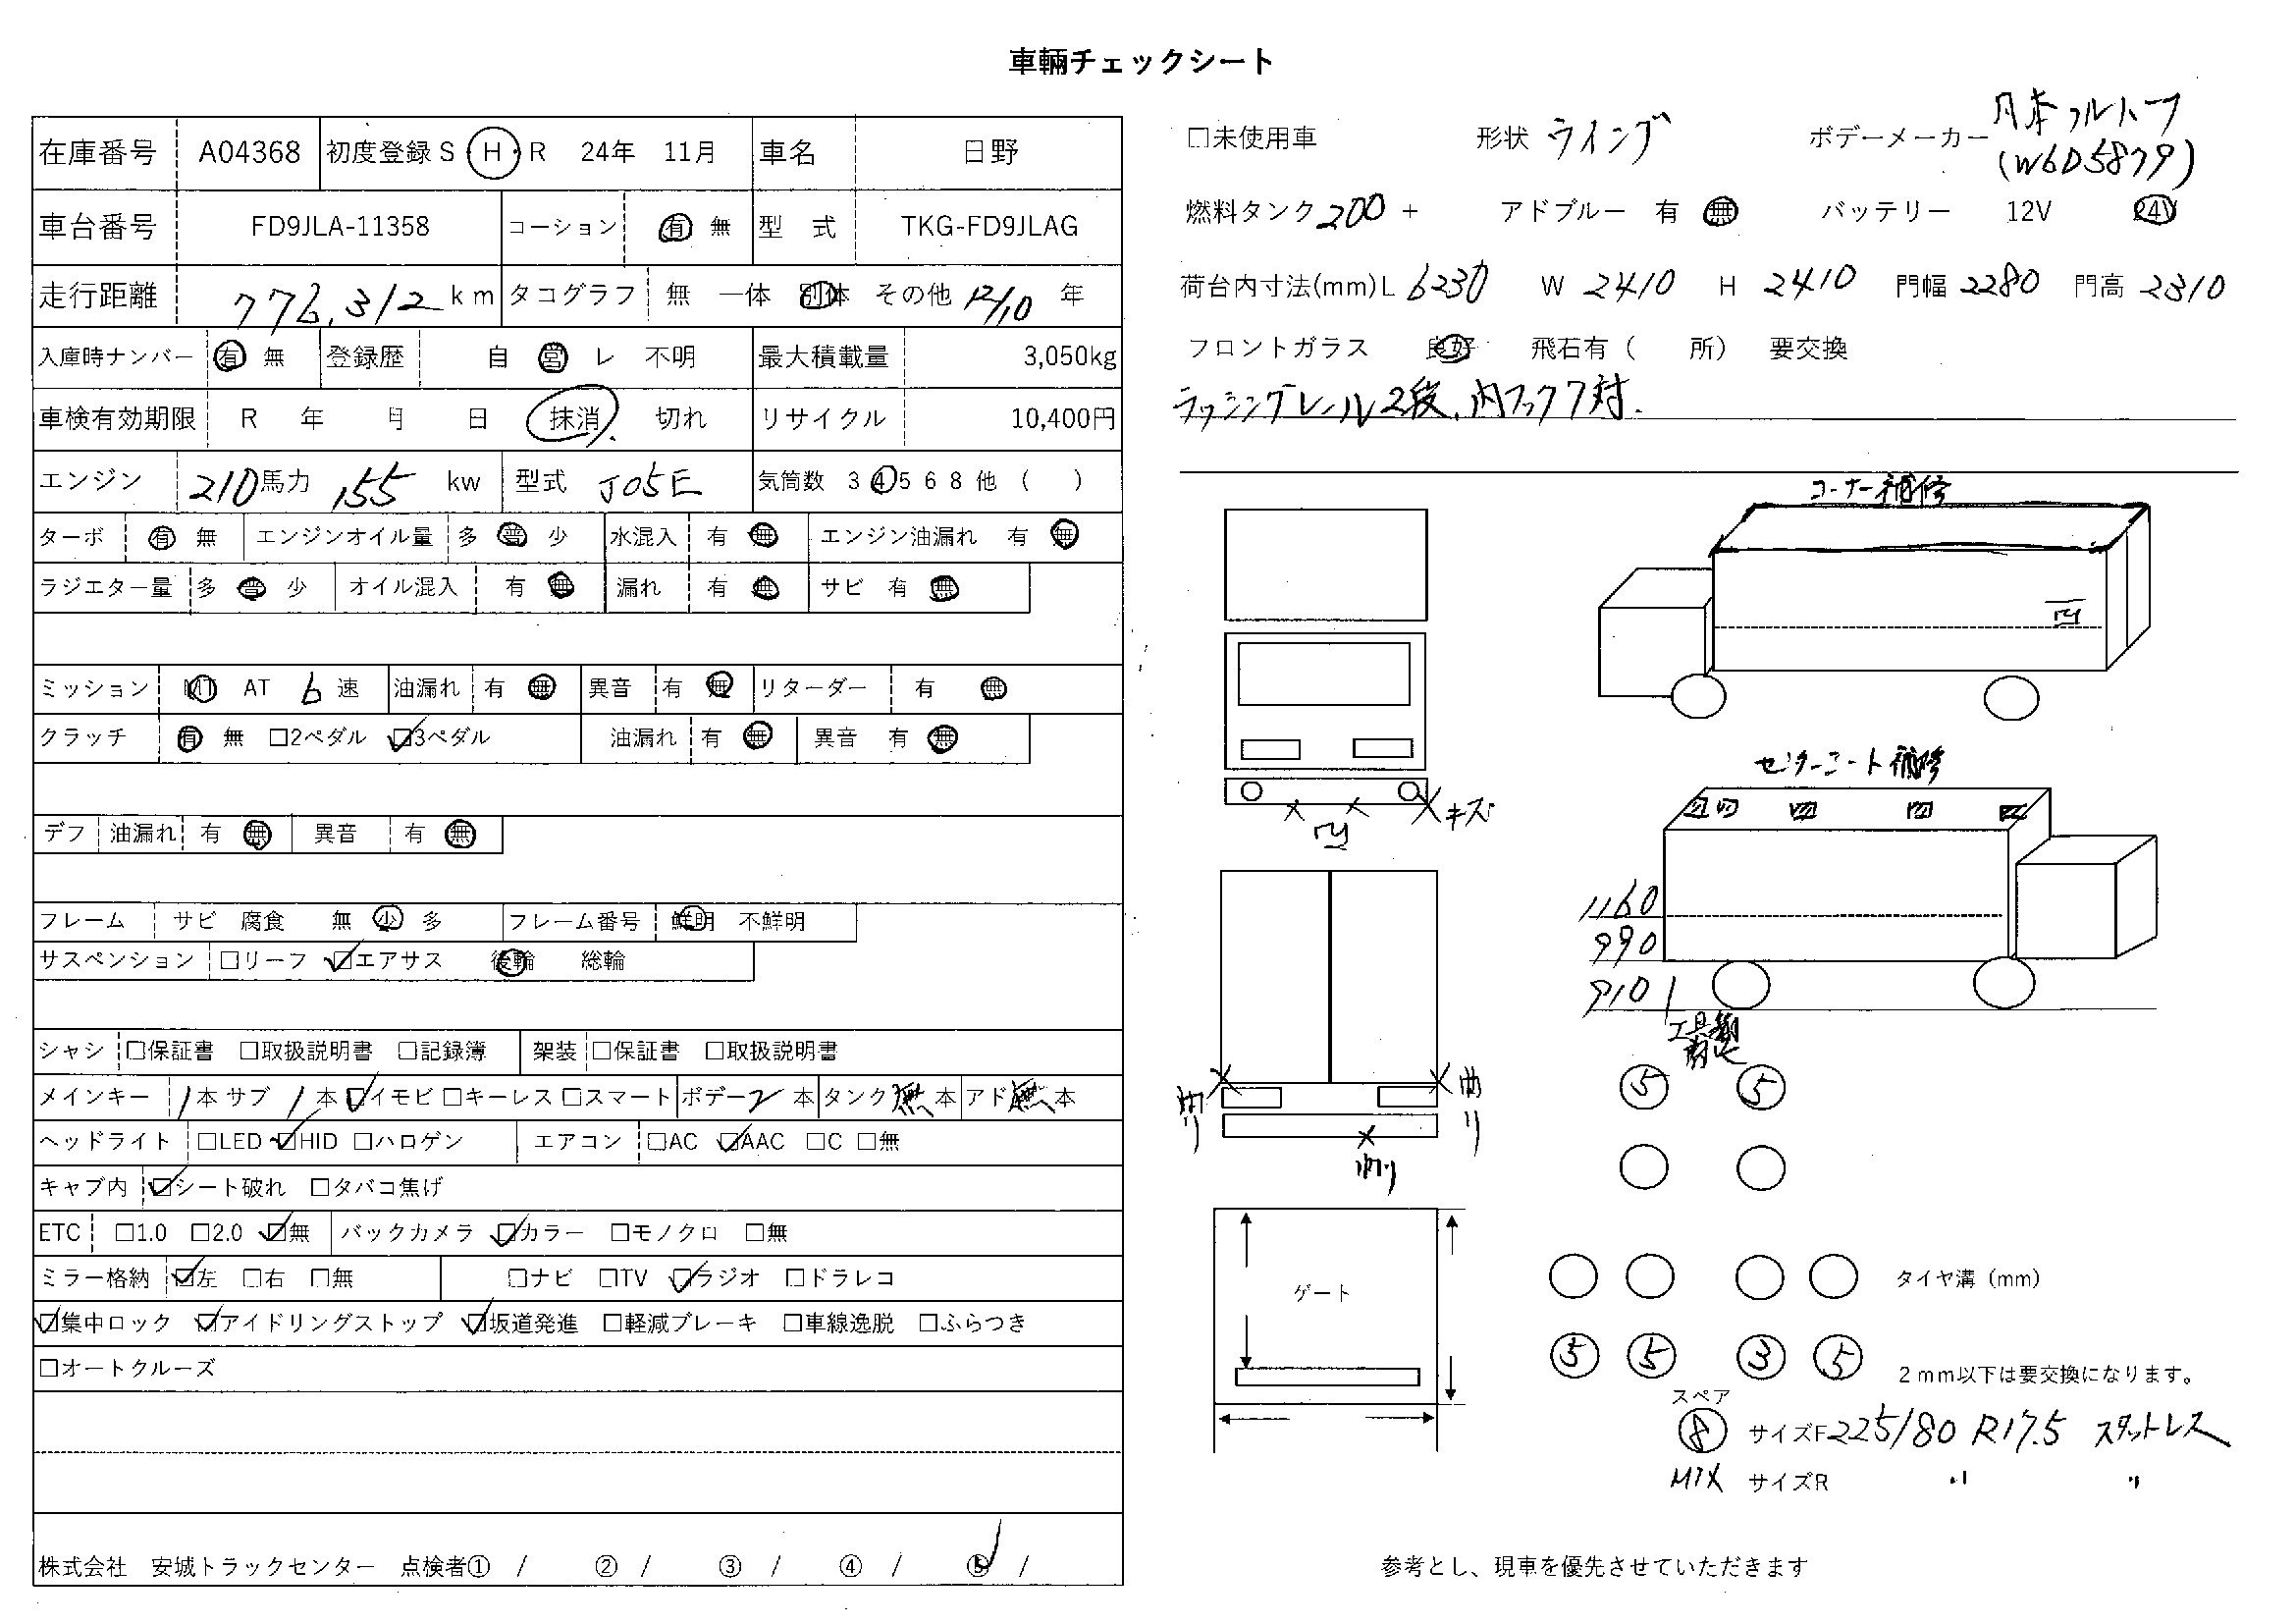 車輌チェックシート
在庫番号 A04368 初度登録 S H R 24年 11月 車名 日野
車台番号 FD9JLA-11358 コーション 有 無 型 式 TKG-FD9JLAG
走行距離 776,312 km タコグラフ 無 一体 別体 その他 12/10 年
入庫時ナンバー 有 無 登録歴 自 営 レ 不明 最大積載量 3,050kg
車検有効期限 R 年 月 日 抹消 切れ リサイクル 10,400円
エンジン 210馬力 155 kw 型式 J05E 気筒数 3 4 5 6 8 他 ( )
ターボ 有 無 エンジンオイル量 多 普 少 水混入 有 無 エンジン油漏れ 有 無
ラジエター量 多 普 少 オイル混入 有 無 漏れ 有 無 サビ 有 無
ミッション MT AT 6 速 油漏れ 有 無 異音 有 無 リターダー 有 無
クラッチ 有 無 □2ペダル ☑3ペダル 油漏れ 有 無 異音 有 無
デフ 油漏れ 有 無 異音 有 無
フレーム サビ 腐食 無 少 多 フレーム番号 鮮明 不鮮明
サスペンション □リーフ ☑エアサス 後輪 総輪
シャシ □保証書 □取扱説明書 □記録簿 架装 □保証書 □取扱説明書
メインキー 1本 サブ 1本 ☑イモビ □キーレス □スマート ボデー2 本 タンク無本 アド無本
ヘッドライト □LED ☑HID □ハロゲン エアコン □AC ☑AAC □C □無
キャブ内 ☑シート破れ □タバコ焦げ
ETC □1.0 □2.0 ☑無 バックカメラ ☑カラー □モノクロ □無
ミラー格納 ☑左 □右 □無 □ナビ □TV ☑ラジオ □ドラレコ
☑集中ロック ☑アイドリングストップ ☑坂道発進 □軽減ブレーキ □車線逸脱 □ふらつき
□オートクルーズ
株式会社 安城トラックセンター 点検者① / ② / ③ / ④ / ⑤ /
□未使用車 形状 ウイング ボデーメーカー 日本フルハーフ
(W6D5879)
燃料タンク200 + アドブルー 有 無 バッテリー 12V 24V
荷台内寸法(mm)L 6230 W 2410 H 2410 門幅 2280 門高 2310
フロントガラス 良好 飛石有 ( 所) 要交換
ラッシングレール2段、内フック7対.
コーナー補修
凹
センターシート補修
キズ
凹
1160
990
910
曲り
曲り
曲り
5 5
ゲート
タイヤ溝 (mm)
5 5 3 5
2mm以下は要交換になります。
スペア
8 サイズF225/80 R17.5 スタットレス
MIX サイズR 〃 〃
参考とし、現車を優先させていただきます